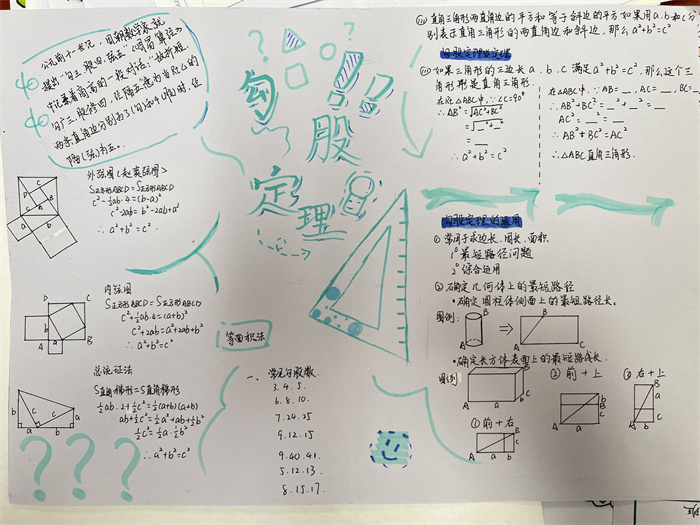 公元前十一世纪,周朝数学家就
提出"勾三、股四、弦五"《周髀算经》
中记录着商高的一段对话:"故折矩,
勾广三,股修四,径隅五"意为当直角的
两条直角边分别为3(勾)和4(股)时,径
隅(弦)为五。
外弦图(赵爽弦图)
S正方形ABCD=S正方形ABCD
c²-½ab·4=(b-a)²
c²-2ab=b²-2ab+a²
∴a²+b²=c²
内弦图
S正方形ABCD=S正方形ABCD
c²+½ab·4=(a+b)²
c²+2ab=a²+2ab+b²
∴a²+b²=c²
总统证法
S直角梯形=S直角梯形
½ab·2+½c²=½(a+b)(a+b)
ab+½c²=½a²+ab+½b²
½c²=½a·½b²
∴a²+b²=c²
???
勾股
定理
!!
等面积法
一、常见勾股数.
3.4.5.
6.8.10.
7.24.25
9.12.15
9.40.41.
5.12.13.
8.15.17.
直角三角形两直角边的平方和等于斜边的平方如果用a.b和c分
别表示直角三角形的两直角边和斜边,那么a²+b²=c²
勾股定理逆定理
如果三角形的三边长a.b.c满足a²+b²=c²,那么这个三
角形形是直角三角形.
在Rt△ABC中,∵∠C=90°
∴AB²=√AC²+BC²
=√_²+_²
=__
∴a²+b²=c²
在△ABC中.∵AB=__,AC=__,BC=_
∴AB²+BC²=_²+_²=__
AC²=_²=__
∴AB²+BC²=AC²
∴△ABC直角三角形.
勾股定理的运用
① 常用于求边长.周长.面积
1°最短路径问题
2°综合运用
② 确定几何体上的最短路径
·确定圆柱体侧面上的最短路径长。
图例:
·确定长方体表面上的最短路线长.
图例
①前+右
②前+上
③右+上